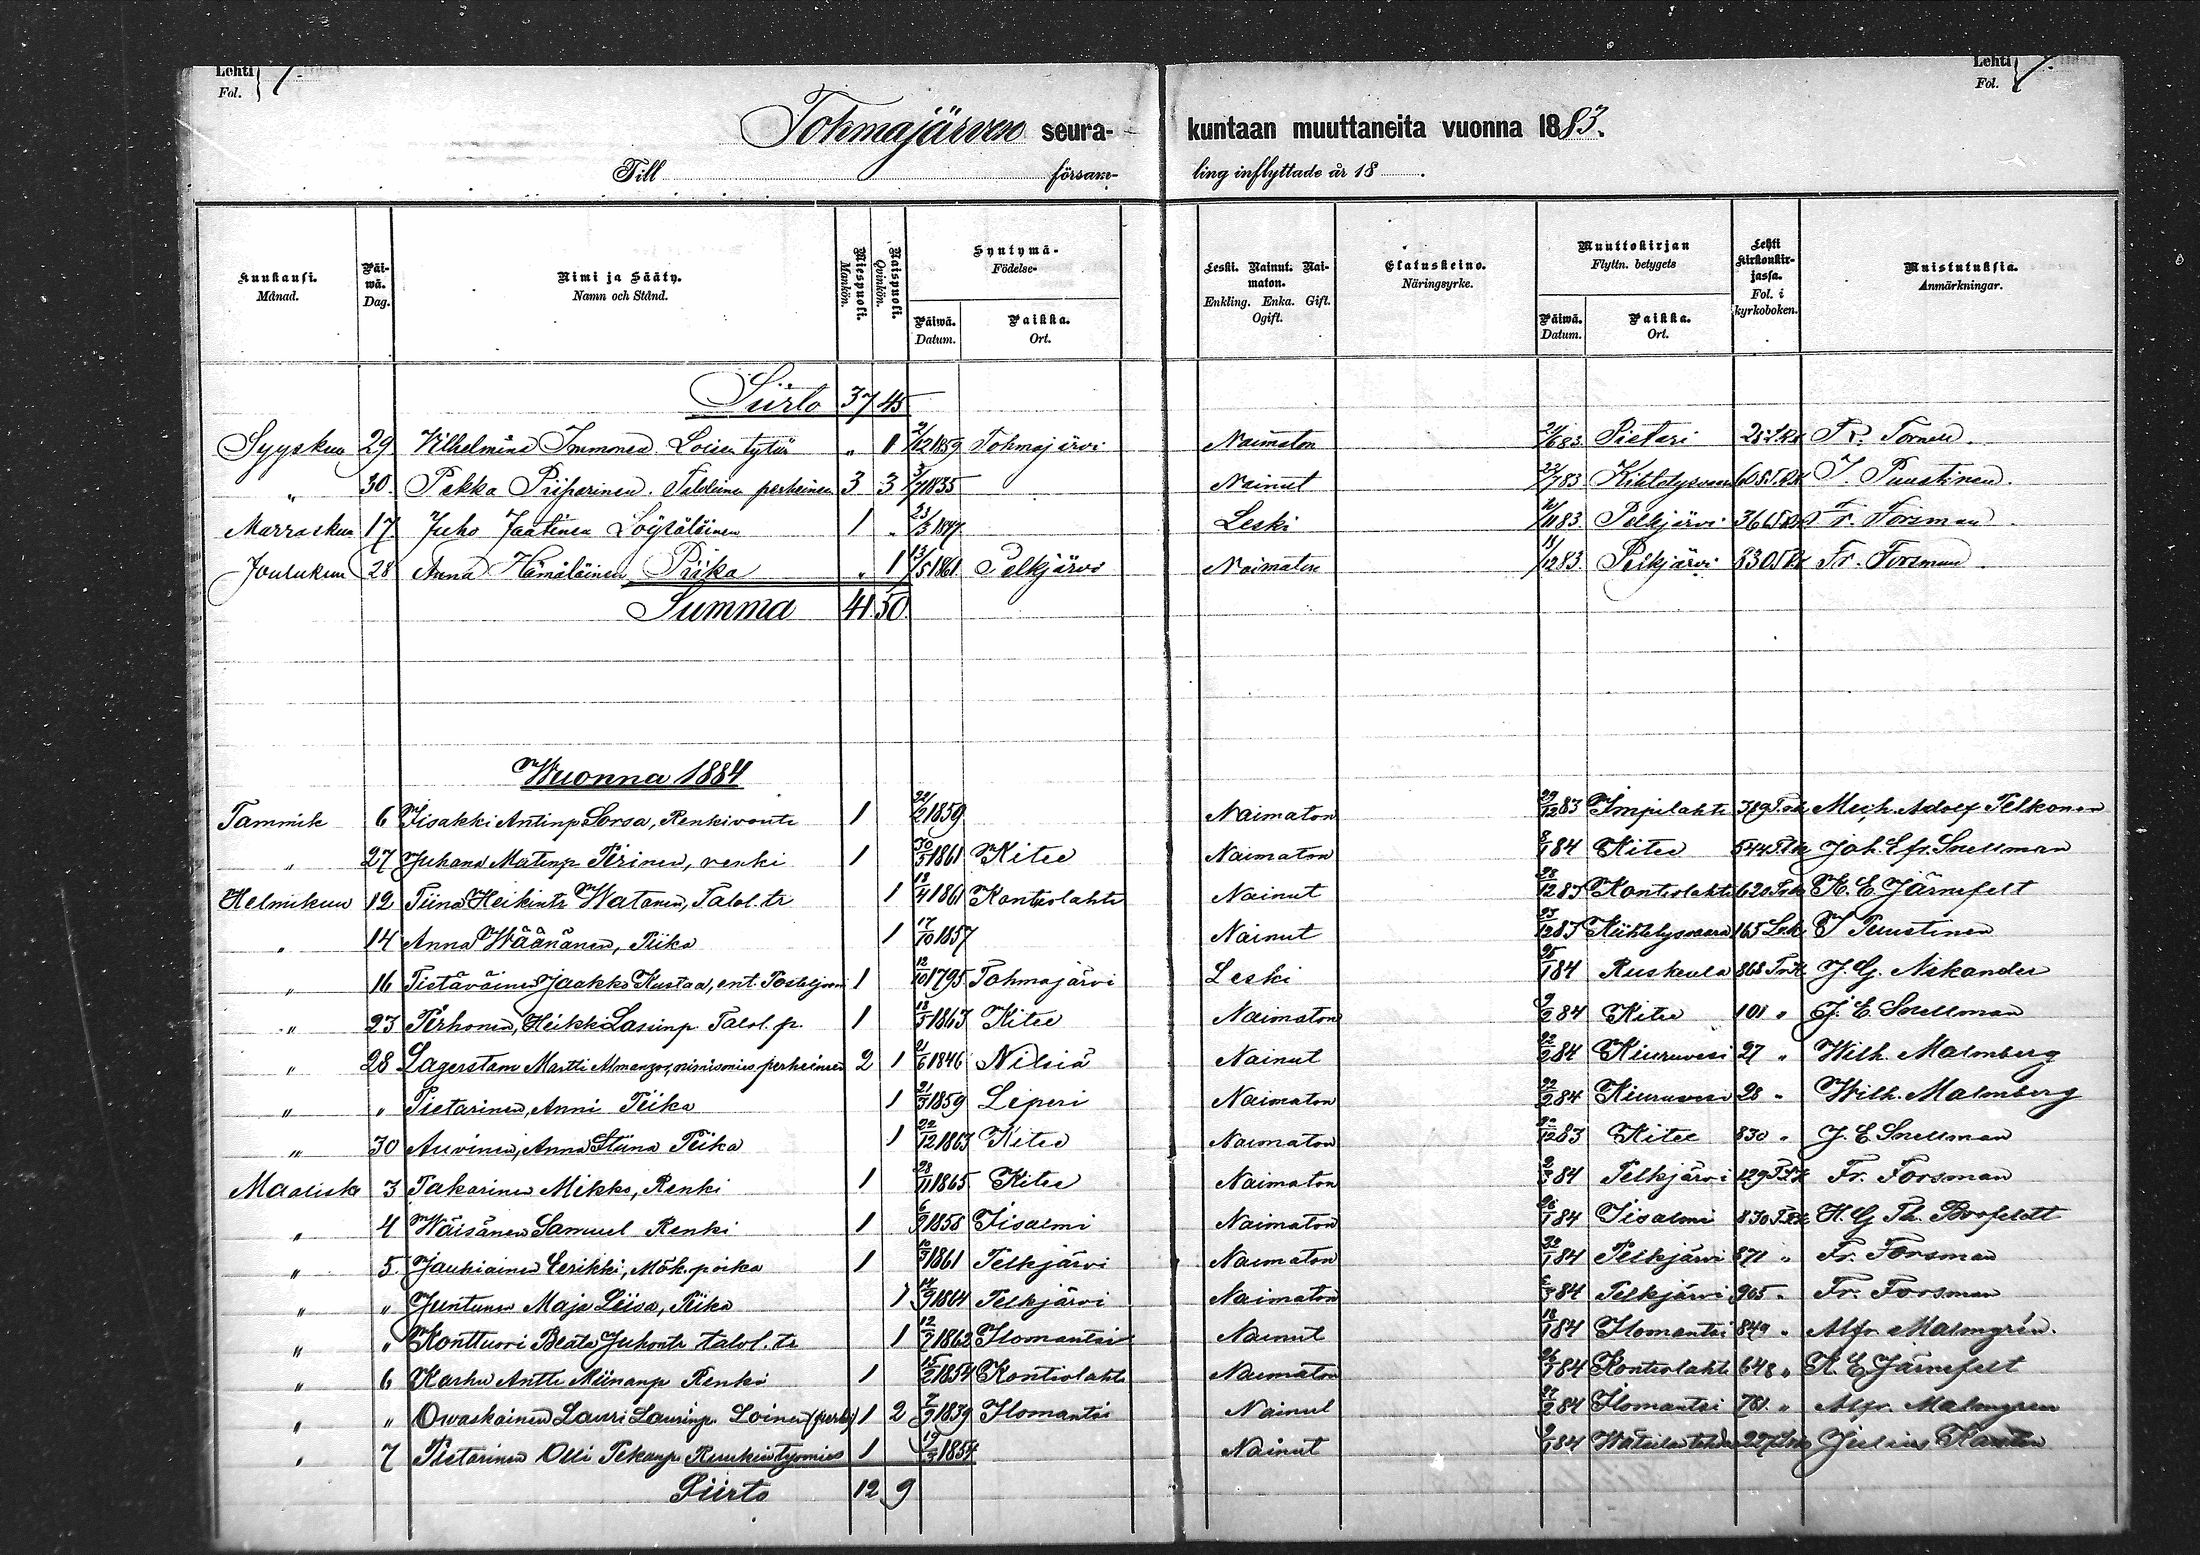 Lehti Fol. 7. Lehti Fol. 7.
Tohmajärven seura- kuntaan muuttaneita vuonna 1883.
Till församling inflyttade år 18 .
Kuukausi. Månad. Päiwä. Dag. Nimi ja Sääty. Namn och Stånd. Miespuoli. Mankön. Naispuoli. Qvinkön. Syntymä- Födelse- Päiwä. Datum. Paikka. Ort. Leski. Nainut. Naimaton. Enkling. Enka. Gift. Ogift. Elatuskeino. Näringsyrke. Muuttokirjan Flyttn. betygets Päiwä. Datum. Paikka. Ort. Lehti kirkonkirjassa. Fol. i kyrkoboken. Muistutuksia. Anmärkningar.
Siirto 37 45
Syyskuu 29 Vilhelmina Immonen Loisen tytär „ 1 2/12 1859 Tohmajärvi Naimaton 21/6 83 Pietari Tornell.
„ 30. Pekka Piiparinen. perheineen 3 3 3/7 1835 Nainut 23/7 83 Kiihtelysvaara J. Puustinen.
Marraskuu 17. Juho Jaatinen Löysäläinen 1 „ 23/3 Leski 83 Pelkjärvi Fr. Forsman.
Joulukuu 28 Anna Hämäläinen Piika „ 1 13/5 1861 Pelkjärvi Naimaton 15/12 83. Pelkjärvi 830 Fr. Forsman.
Summa 41. 50.
Wuonna 1884
Tammik 6 Iisakki Antinp. Sorsa, Renkivouti 1 22/2 1859 Naimaton 29/12 83 Impilahti 389 Mich. Adolf Pelkonen
„ 27 Juhana Matinp Piirinen, renki 1 30/5 1861 Kitee Naimaton 8/1 84 Kitee 544 Joh. Efr. Snellman
Helmikuu 12 Tiina Heikintr Watanen, Talol. tr 1 18/4 1861 Kontiolahti Nainut 28/12 83 Kontiolahti 620 K. E. Järnefelt
„ 14 Anna Wäänänen, Piika 1 17/10 1857 Nainut 23/12 83 Kiihtelysvaara 165 J Puustinen
„ 16 Pistäväinen Jaakko Kustaa, ent. Postiljooni 1 12/10 1795 Tohmajärvi Leski 25/1 84 Ruskeala 868 J. G. Niskander
„ 23 Pirhonen, Heikki Lassinp Talol. p. 1 18/5 1863 Kitee Naimaton 9/2 84 Kitee 101 „ J. E. Snellman
„ 28 Lagerstam Martti Almanzor, nimismies perheineen 2 1 21/6 1846 Nilsiä Nainut 22/2 84 Kiuruvesi 27 „ Wilh. Malmberg
„ „ Pietarinen, Anni Piika 1 21/3 1859 Liperi Naimaton 22/2 84 Kiuruvesi 28 „ Wilh. Malmberg
„ 30 Auvinen, Anna Stiina Piika 1 22/12 1863 Kitee Naimaton 12 83 Kitee 830 „ J. E. Snellman
Maalisk 3 Pakarinen Mikko, Renki 1 28/11 1865 Kitee Naimaton 2/3 84 Pelkjärvi 129 Fr. Forsman
„ 4 Wäisänen Samuel Renki 1 6/9 1858 Iisalmi Naimaton 26/1 84 Iisalmi 830 K. G. Th. Brofeldt
„ 5. Jauhiainen Eerikki, Mök. poika 1 10/3 1861 Pelkjärvi Naimaton 1 84 Pelkjärvi 871 „ Fr. Forsman
„ „ Juntunen Maja Liisa, Piika 1 14/9 1864 Pelkjärvi Naimaton 2/3 84 Pelkjärvi 905 „ Fr. Forsman
„ „ Konttuori Beata Juhontr talol. tr 1 12/7 1862 Ilomantsi Nainut 18/1 84 Ilomantsi 849 „ Alfr. Malmgren.
„ 6 Karhu Antti Miinanp Renki 1 15/2 1854 Kontiolahti Naimaton 84 Kontiolahti 648 „ K E Järnefelt
„ „ Owaskainen Lauri Laurinp. Loinen (perh.) 1 2 7/9 1839 Ilomantsi Nainut 27/2 84 Ilomantsi 781 „ Alfr. Malmgren
„ 7 Pietarinen Olli Pekanp. Ruukintyömies 1 19 1854 Nainut 84 Wärtsilä tehdas 227 Julius
Siirto 12 9